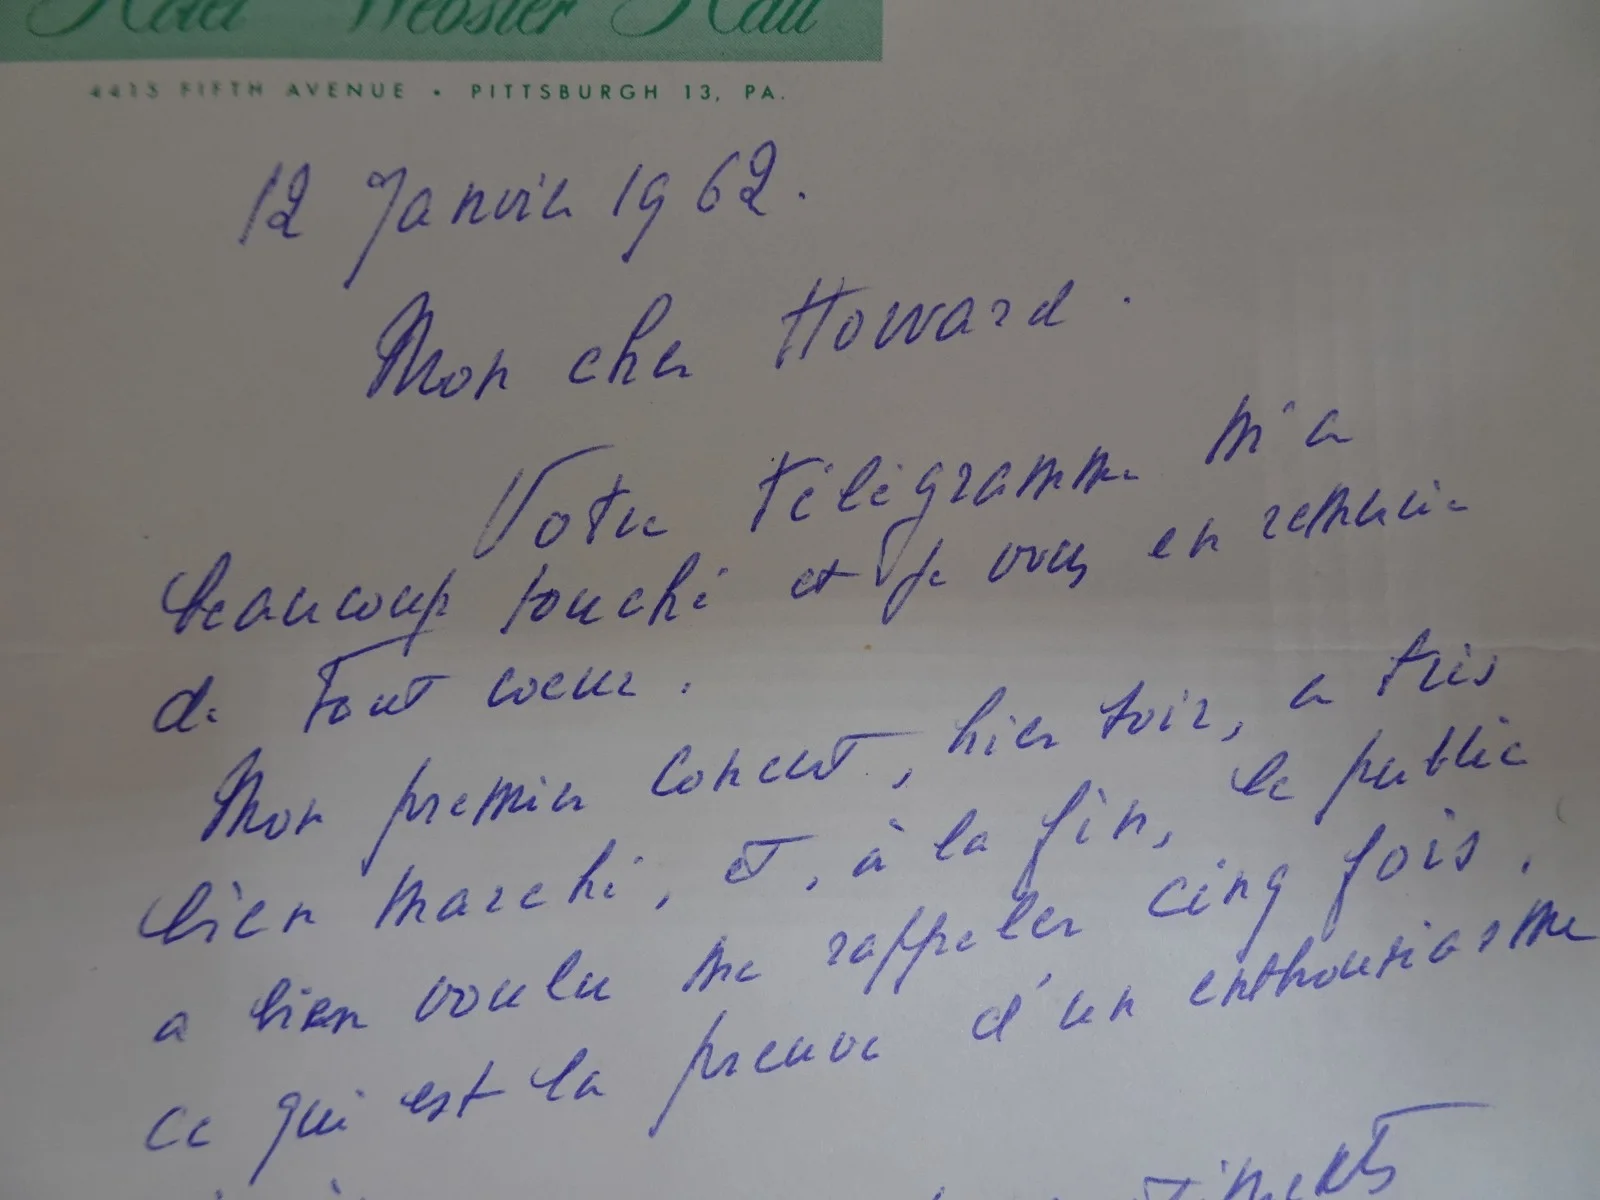 Hotel Webster Hall
4415 FIFTH AVENUE • PITTSBURGH 13, PA.
12 Janvier 1962.
Mon cher Howard.
Votre télégramme m'a
beaucoup touché et je vous en remercie
de tout coeur.
Mon premier concert, hier soir, a très
bien marché, et, à la fin, le public
a bien voulu me rappeler cinq fois,
ce qui est la preuve d'un enthousiasme